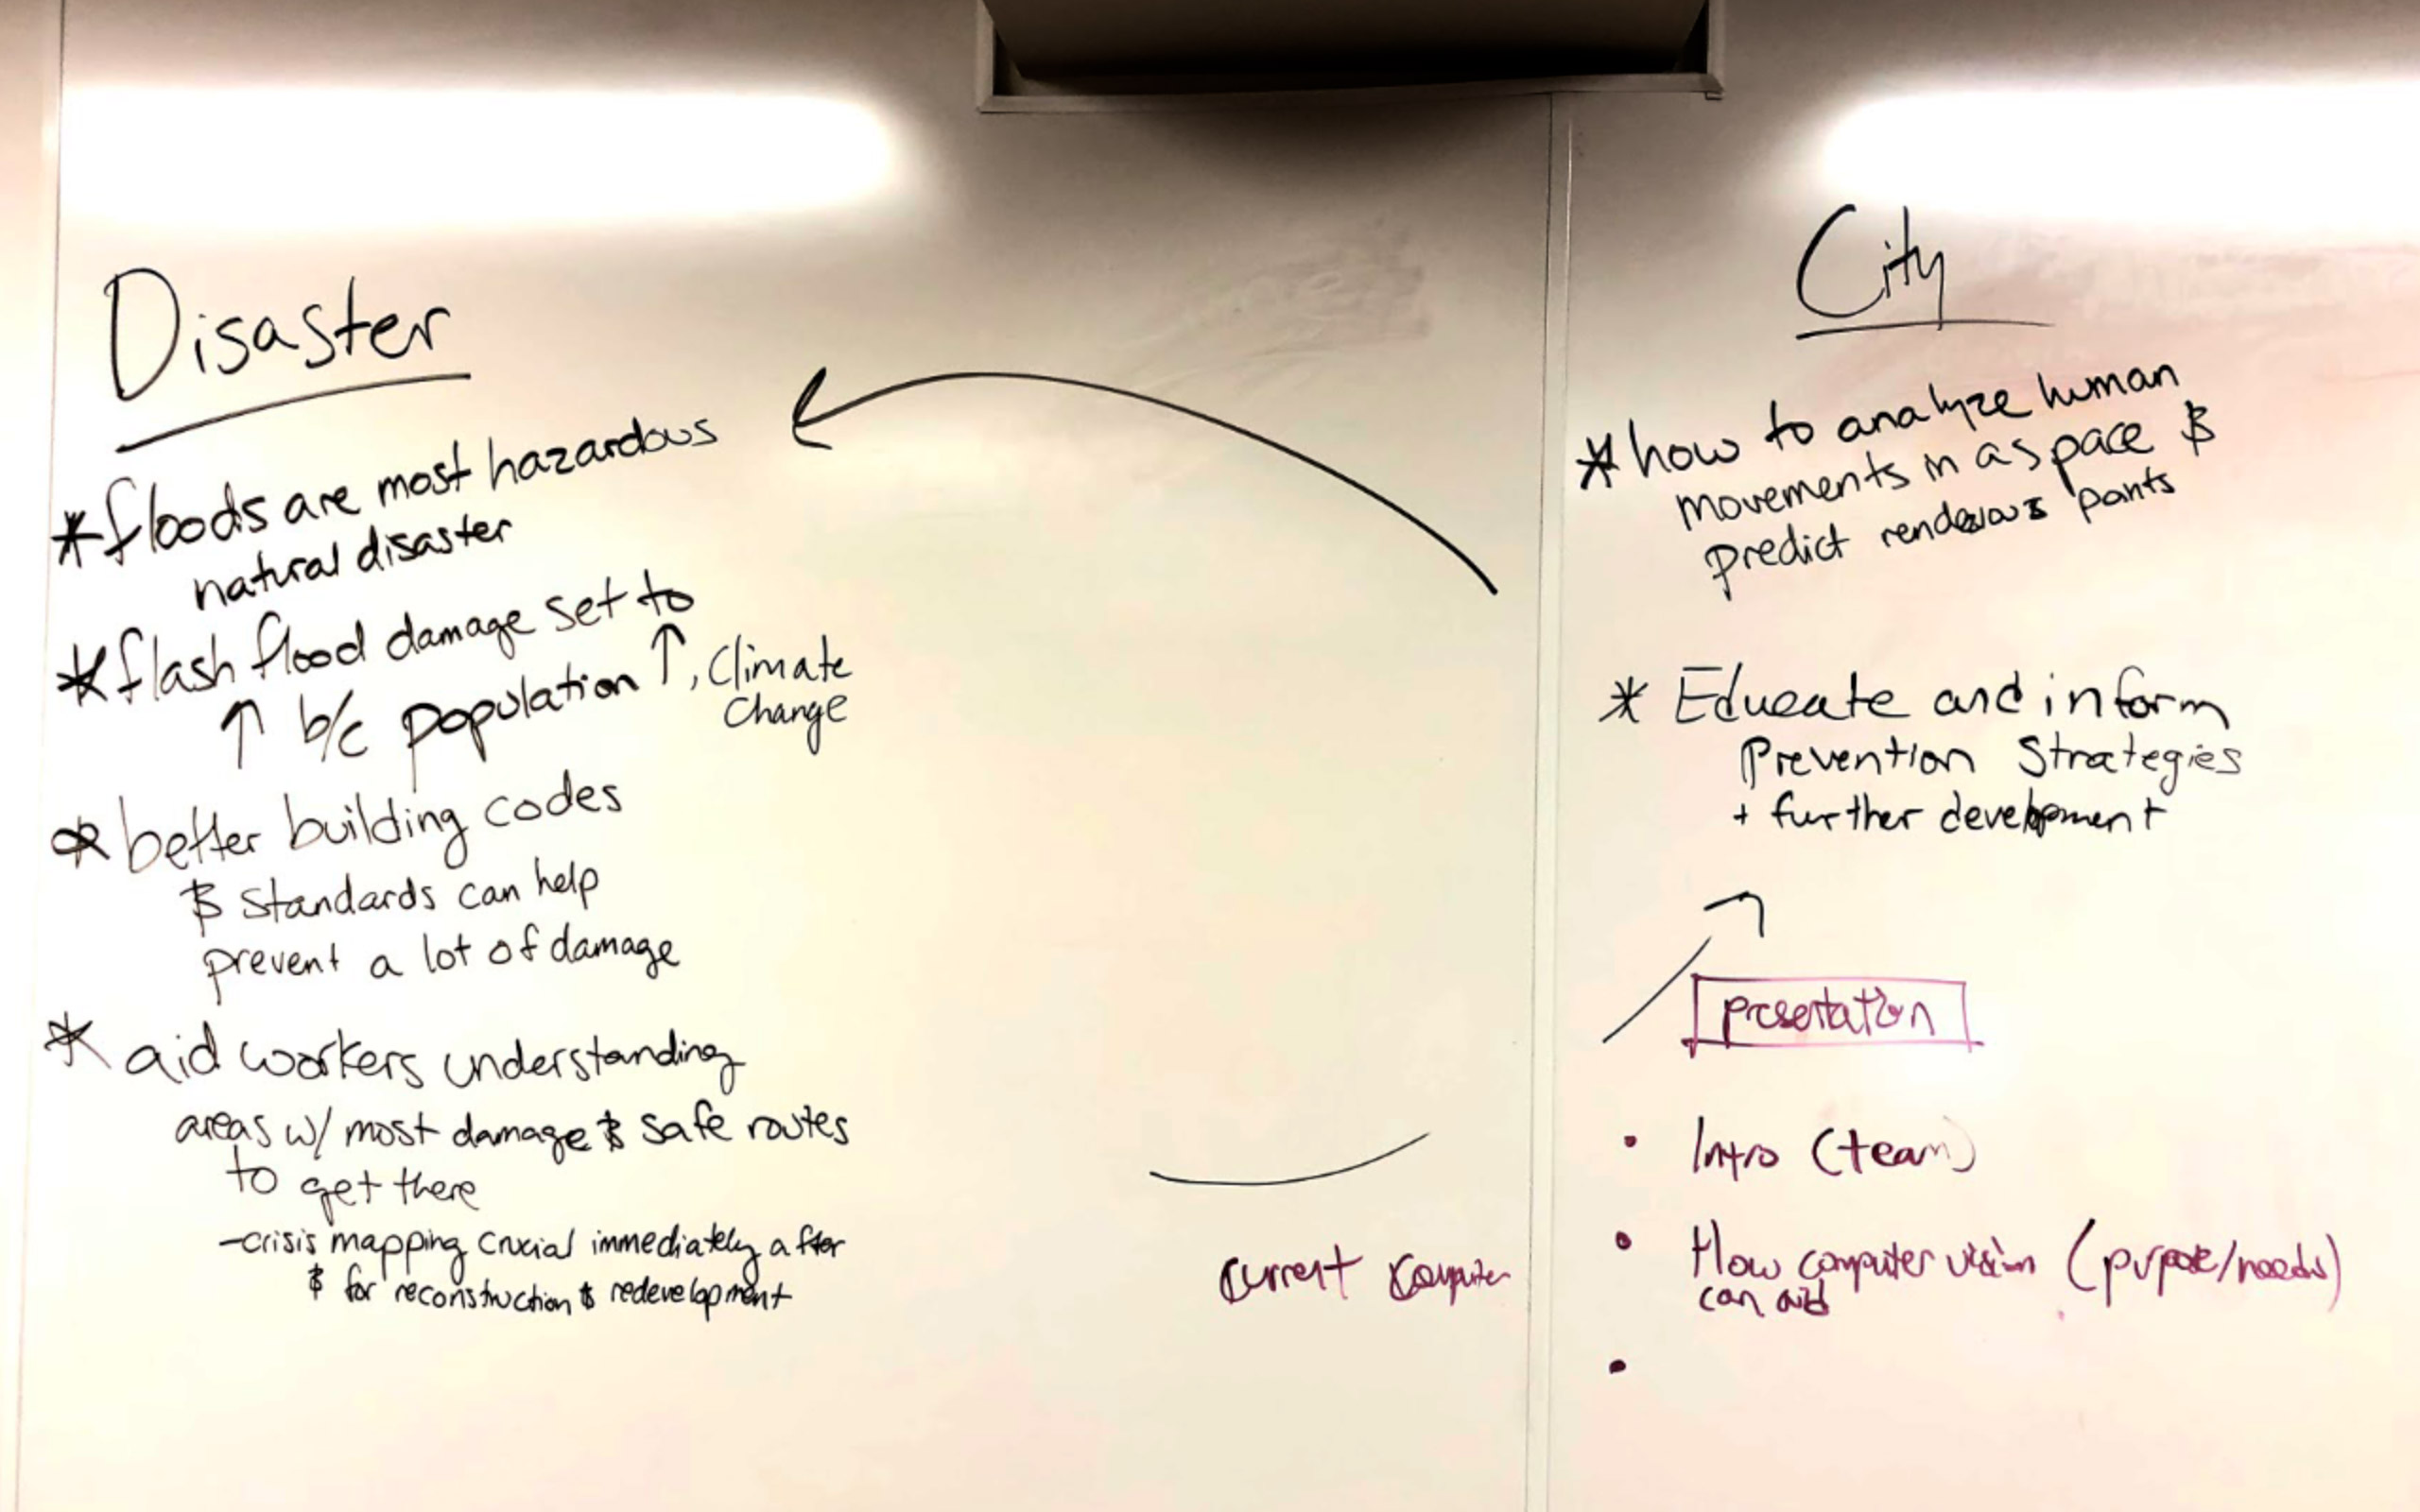 Disaster
*floods are most hazardous
natural disaster
*flash flood damage set to
↑ b/c population ↑, Climate
Change
*better building codes
& standards can help
prevent a lot of damage
* aid workers understanding
areas w/ most damage & safe routes
to get there
-crisis mapping crucial immediately after
& for reconstruction & redevelopment
current computer
City
*how to analyze human
movements in a space &
predict points
* Educate and inform
Prevention Strategies
+ further development
presentation
• Intro (team)
• How computer vision (purpose/needs)
can aid
•